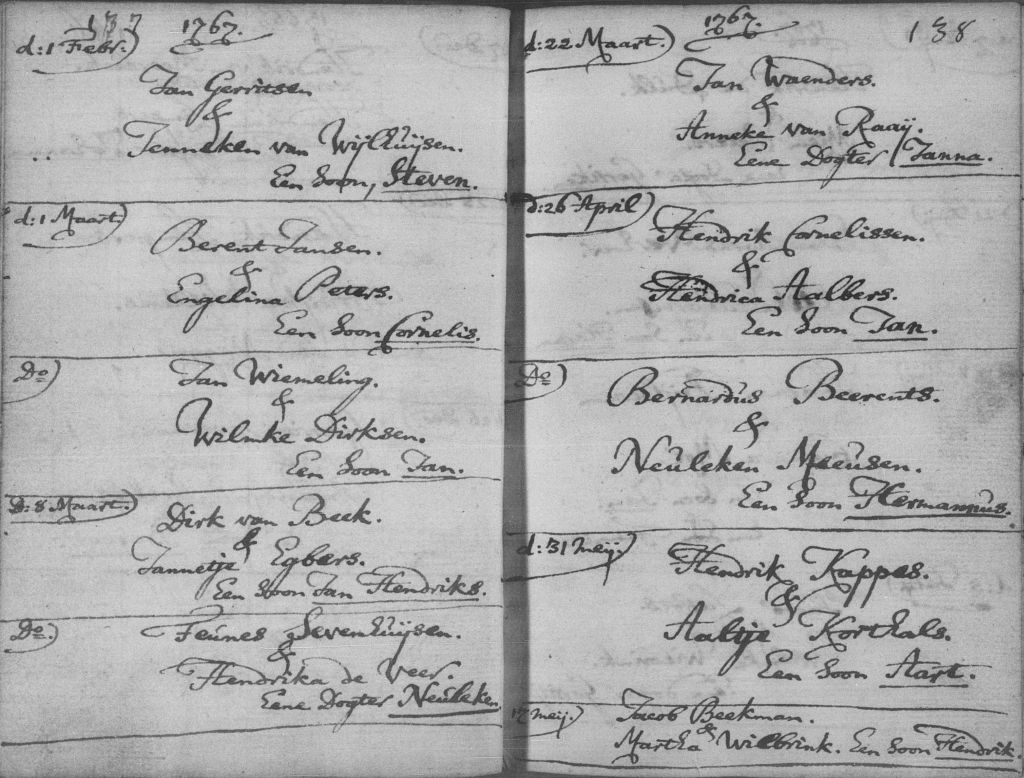 137 1767.
d: 1 Febr.)
Jan Gerritsen
&
Jenneken van Wijlhuijsen.
Een Soon, Steven.
d: 1 Maart)
Berent Jansen.
&
Engelina Peters.
Een Soon Cornelis.
Do)
Jan Wiemeling.
&
Wilmke Dirksen.
Een Soon Jan.
D: 8 Maart.)
Dirk van Beek.
&
Jannetje Egbers.
Een Soon Jan Hendriks.
Do.)
Teunes Sevenhuijsen.
&
Hendrika de Veer.
Eene Dogter Neuleken
1767. 138
d: 22 Maart.)
Jan Waenders.
&
Anneke van Raaij.
Eene Dogter Janna.
d: 26 April)
Hendrik Cornelissen.
&
Hendrica Aalbers.
Een Soon Jan.
Do)
Bernardus Beerents.
&
Neuleken Meeusen.
Een Soon Hermannus.
d: 31 meij.)
Hendrik Kappes.
&
Aaltje Korthals.
Een Soon Aart.
meij.) Jacob Beekman.
&
Martha Wilbrink. Een Soon Hendrik.